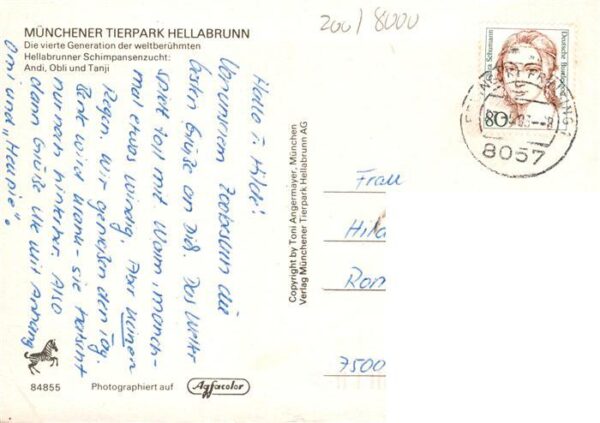 MÜNCHENER TIERPARK HELLABRUNN
Die vierte Generation der weltberühmten
Hellabrunner Schimpansenzucht:
Andi, Obli und Tanji
200/8000
Hallo
Zoobaum die
besten Grüße an Dich. Das Wetter
spielt toll mit. Warm, manch-
mal etwas windig. Aber keinen
Regen. Wir genießen den Tag.
wird - sie
nur noch hinterher. Also
dann Grüße Uk mit Anhang
Omi und "
84855
Photographiert auf
Agfacolor
Copyright by Toni Angermayer, München
Verlag Münchener Tierpark Hellabrunn AG
Clara Schumann
Deutsche Bundespost
80
8057
Frau
Hila
Ron
7500